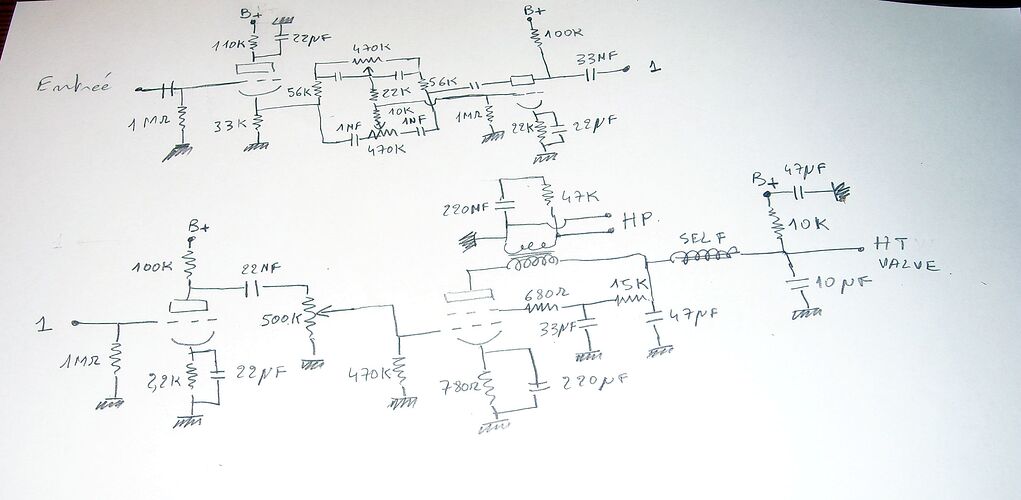 B+
110K
22µF
Entrée
1MΩ
33K
56K
470K
22K
10K
1NF
1NF
470K
56K
1MΩ
B+
100K
33NF
1
22K
22µF
B+
100K
22NF
1
1MΩ
2,2K
22µF
500K
470K
220NF
47K
HP.
680Ω
15K
33µF
47µF
780Ω
220µF
SELF
B+
47µF
10K
HT
VALVE
10µF